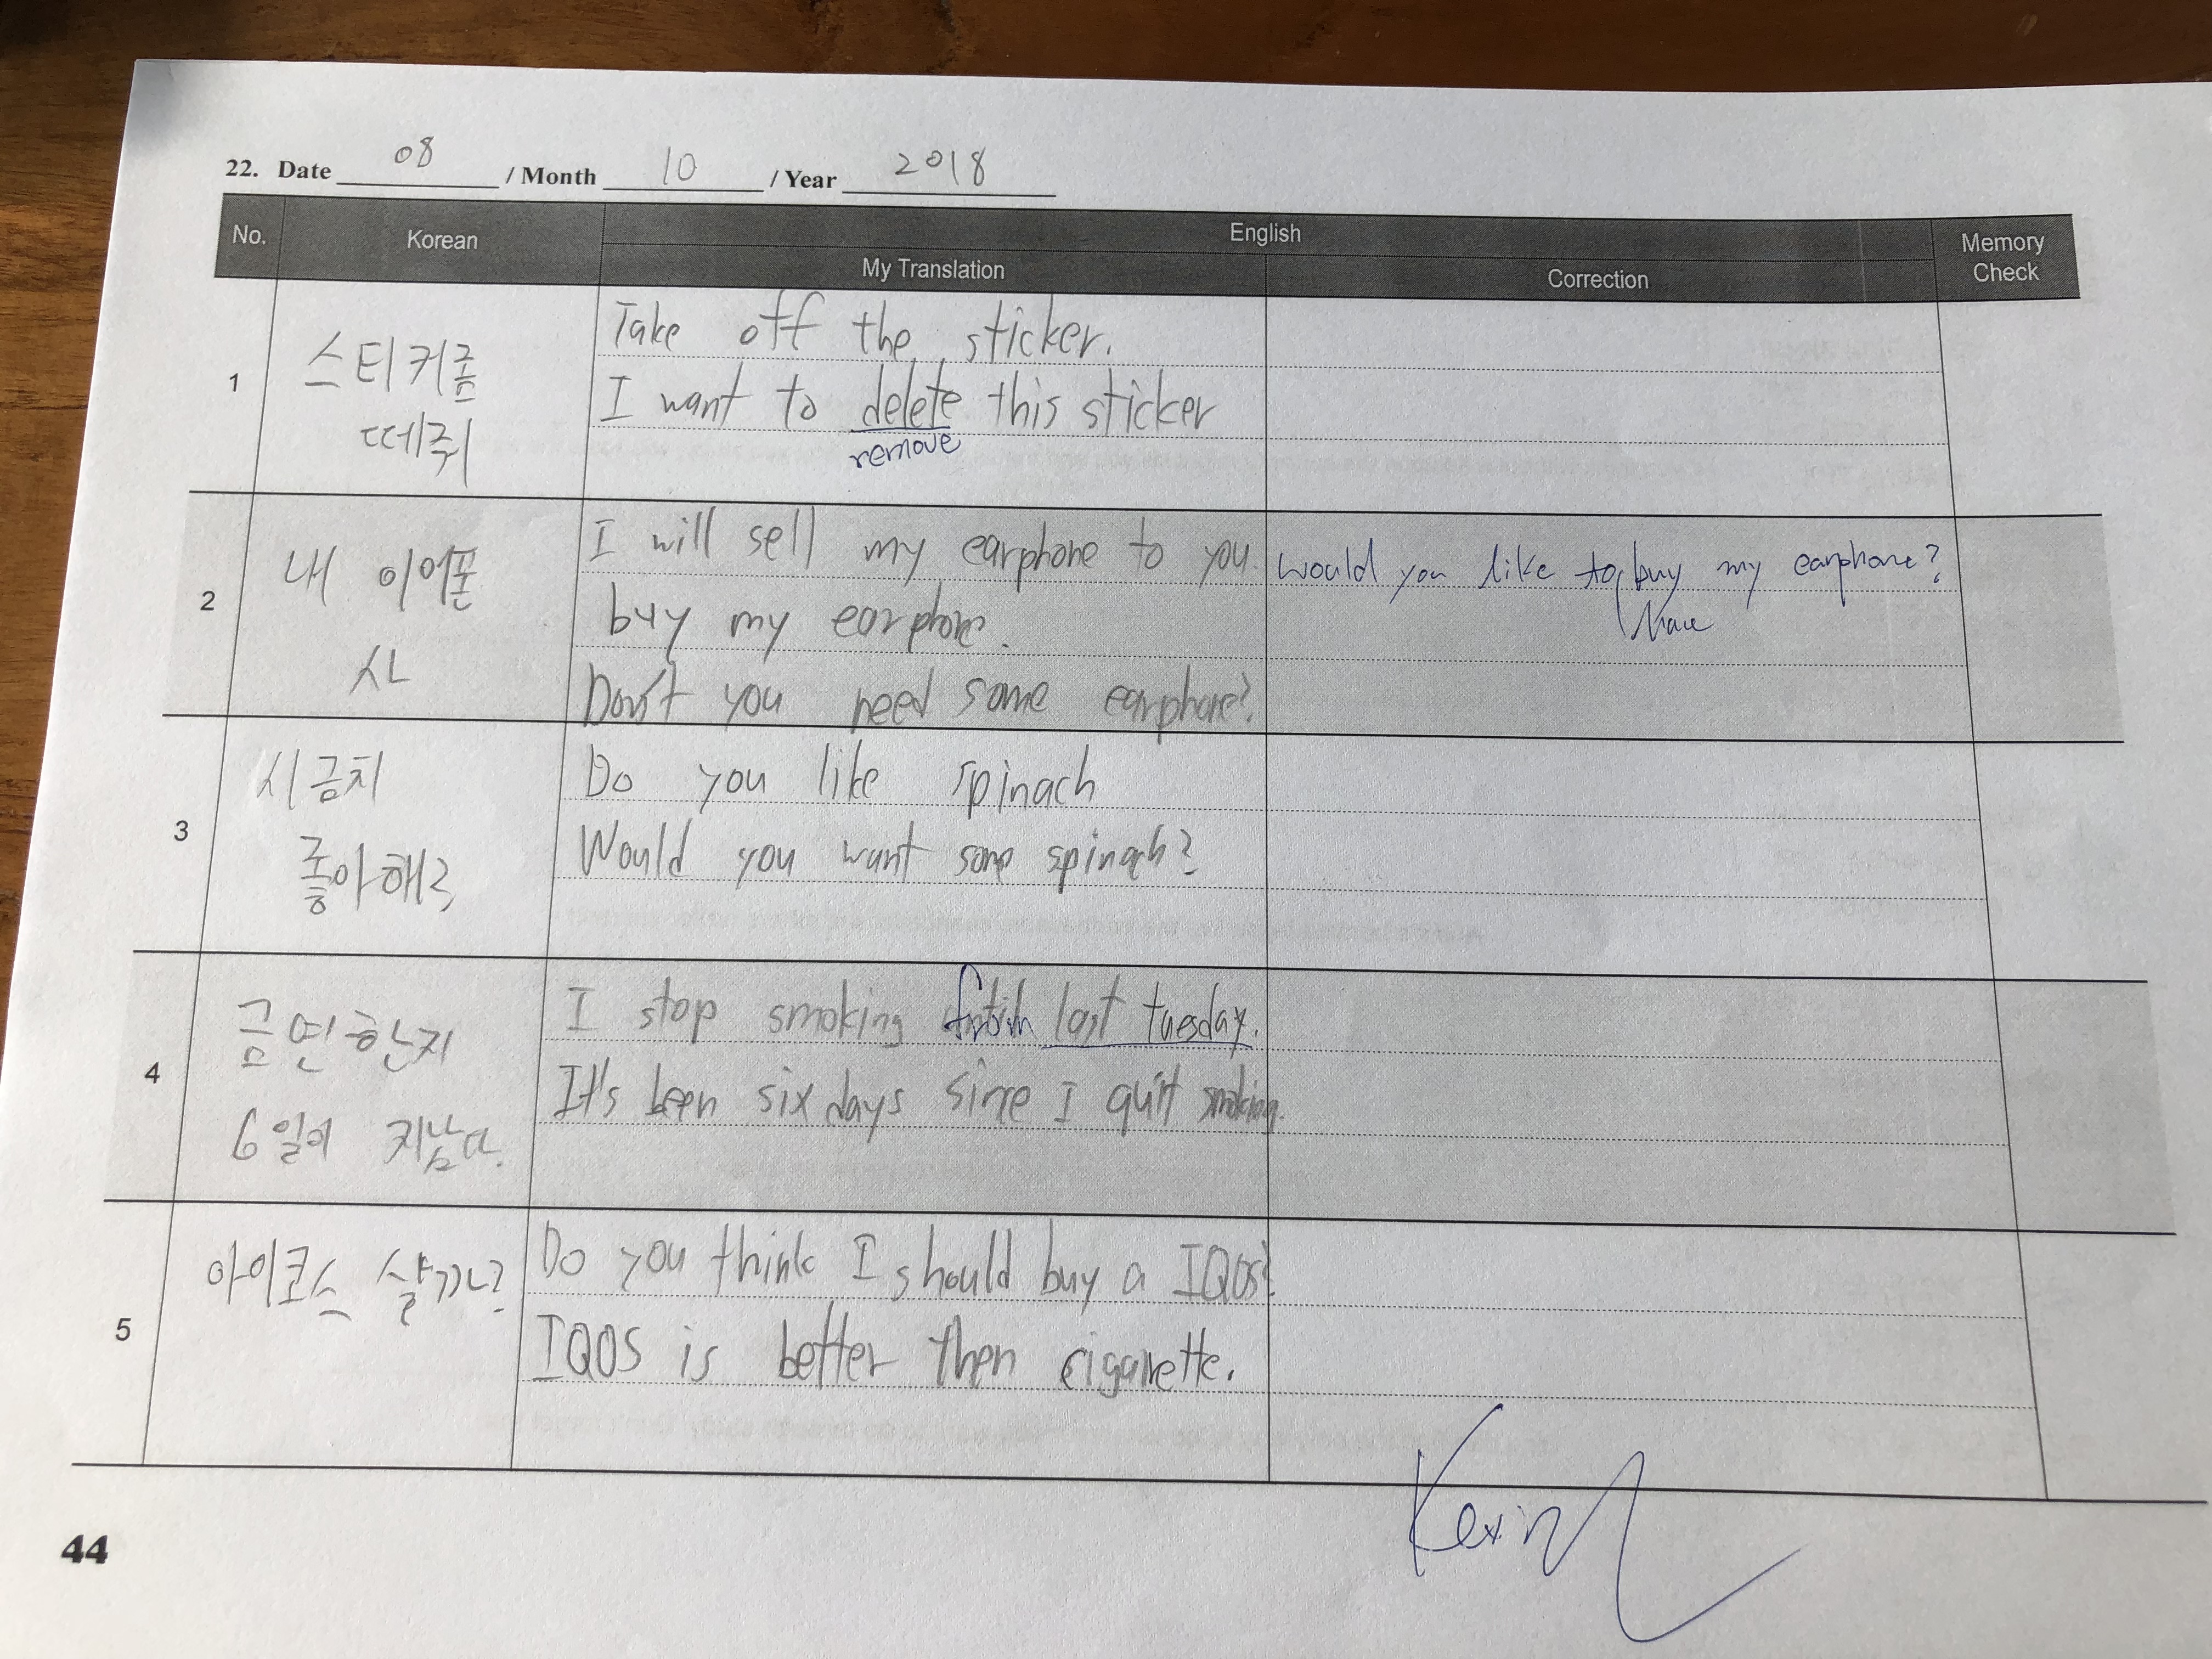 22. Date 08 / Month 10 / Year 2018
No. Korean English Memory Check
My Translation Correction
1 스티커좀 Take off the sticker.
떼줘 I want to delete this sticker
remove
2 내 이어폰 I will sell my earphone to you. would you like to buy my earphone?
사 buy my earphone. have
Don't you need some earphone?
3 시금치 Do you like spinach
좋아해? Would you want some spinach?
4 금연한지 I stop smoking from last tuesday.
6일이 지났다. It's been six days since I quit smoking.
5 아이코스 살까? Do you think I should buy a IQOS?
IQOS is better then cigarette.
Kevin
44